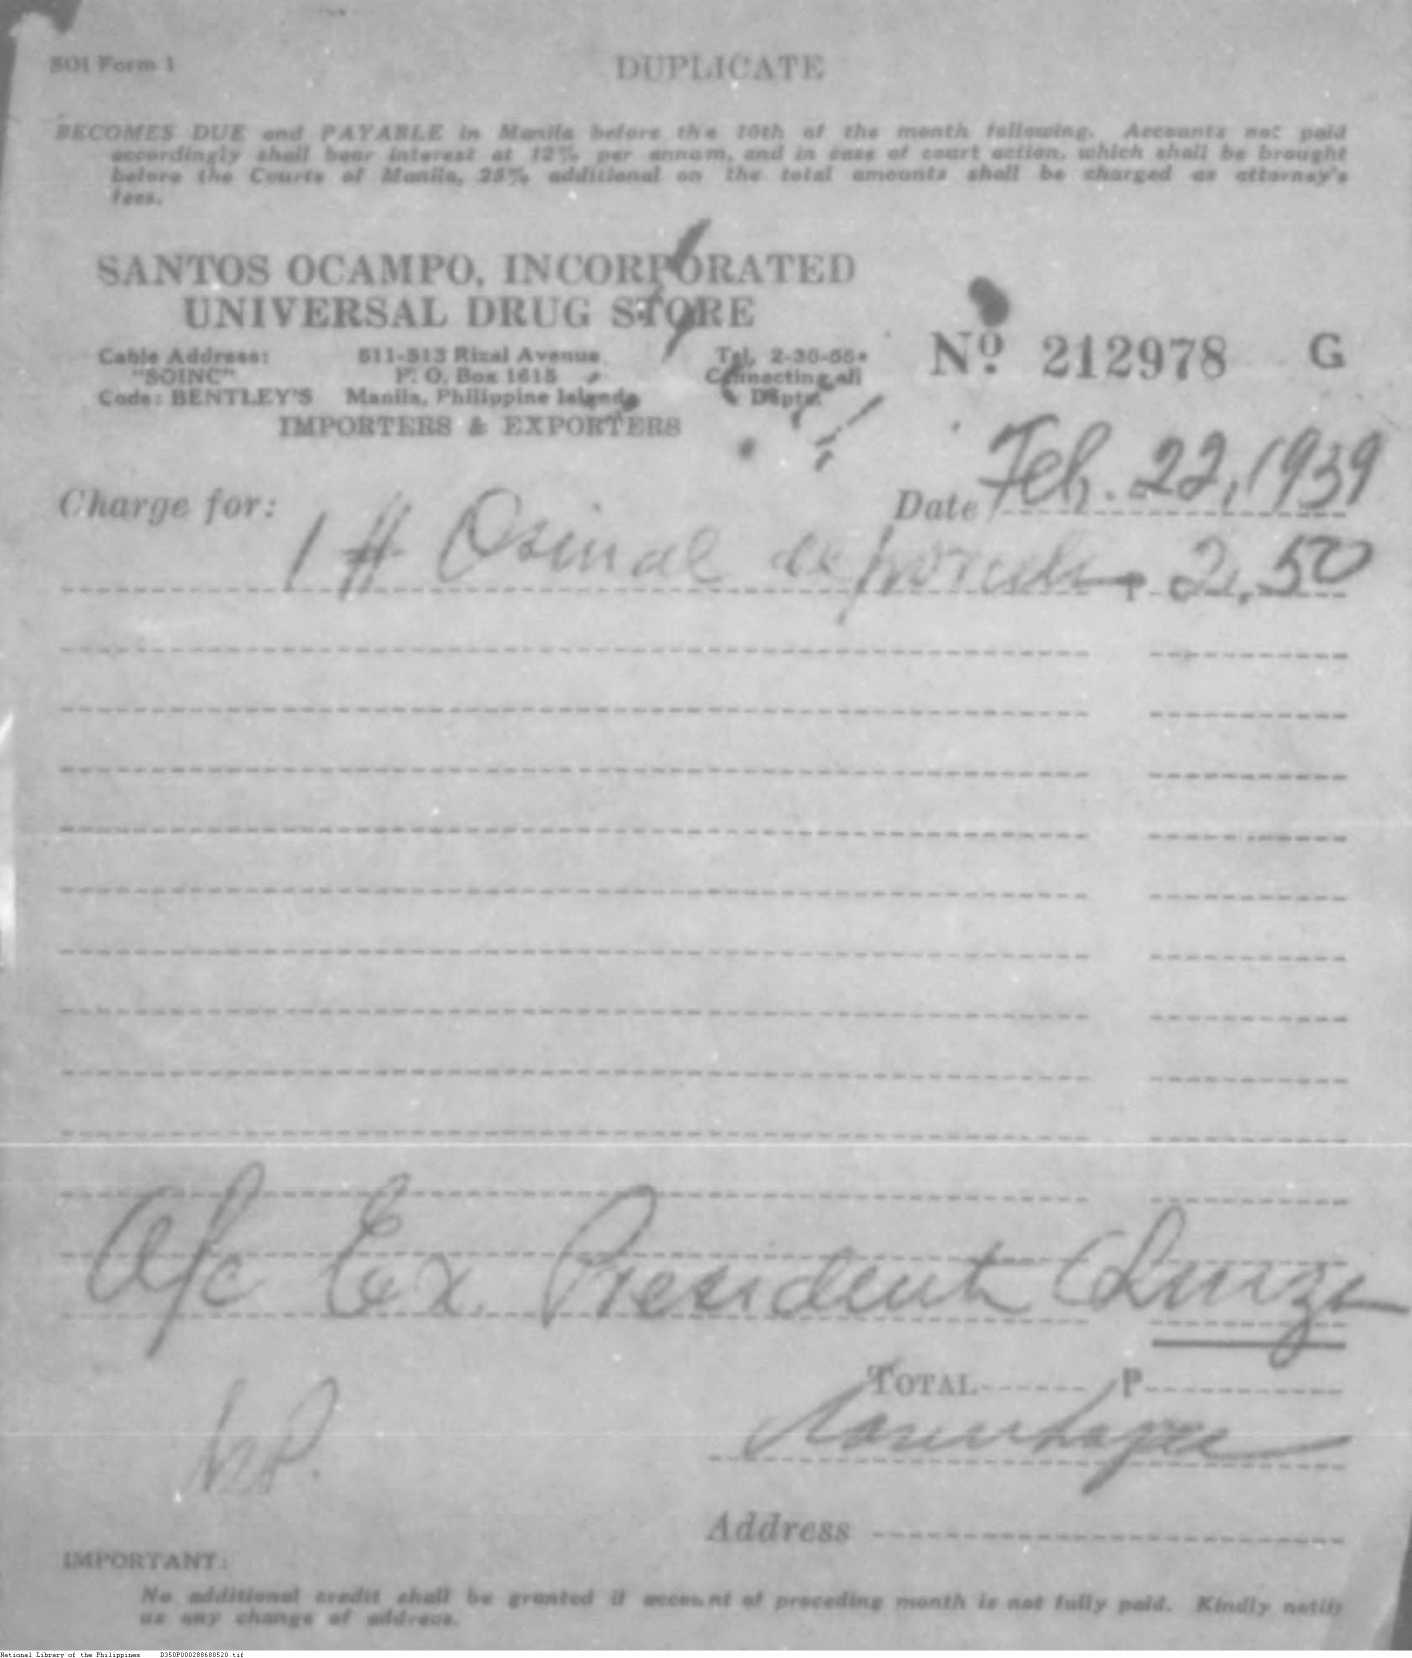 SOI Form 1
DUPLICATE
BECOMES DUE and PAYABLE in Manila before the 10th of the month following. Accounts not paid
accordingly shall bear interest at 12% per annum, and in case of court action, which shall be brought
before the Courts of Manila, 25% additional on the total amounts shall be charged as attorney's
fees.
SANTOS OCAMPO, INCORPORATED
UNIVERSAL DRUG STORE
Cable Address: 511-513 Rizal Avenue Tel. 2-36-55
"SOINC" P. O. Box 1615 Connecting all
Code: BENTLEY'S Manila, Philippine Islands Depts.
IMPORTERS & EXPORTERS
No. 212978 G
Charge for: Date Feb. 22, 1939
1 # 2.50
A/c Ex. President
TOTAL P
Address
IMPORTANT:
No additional credit shall be granted if account of preceding month is not fully paid. Kindly notify
us any change of address.
National Library of the Philippines D350P000288688520.tif